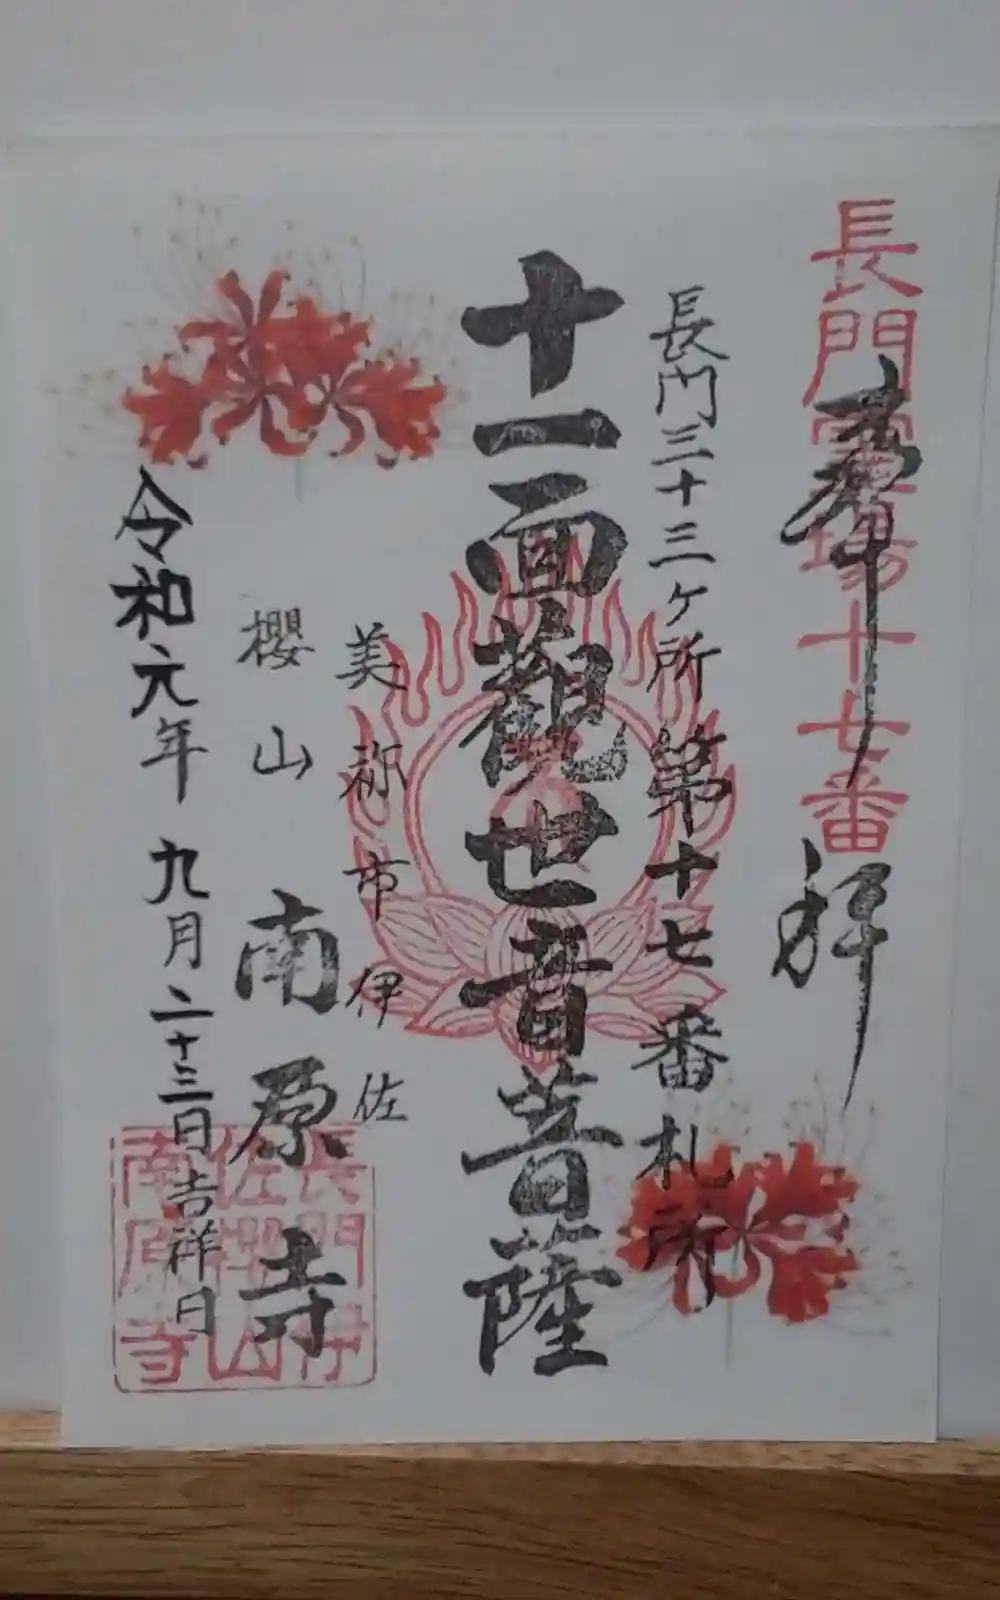 長門霊場十七番
奉拝
長門三十三ヶ所 第十七番札所
十一面観世音菩薩
美祢市伊佐
櫻山 南原寺
令和元年 九月二十三日吉祥日
長門伊
佐櫻山
南原寺